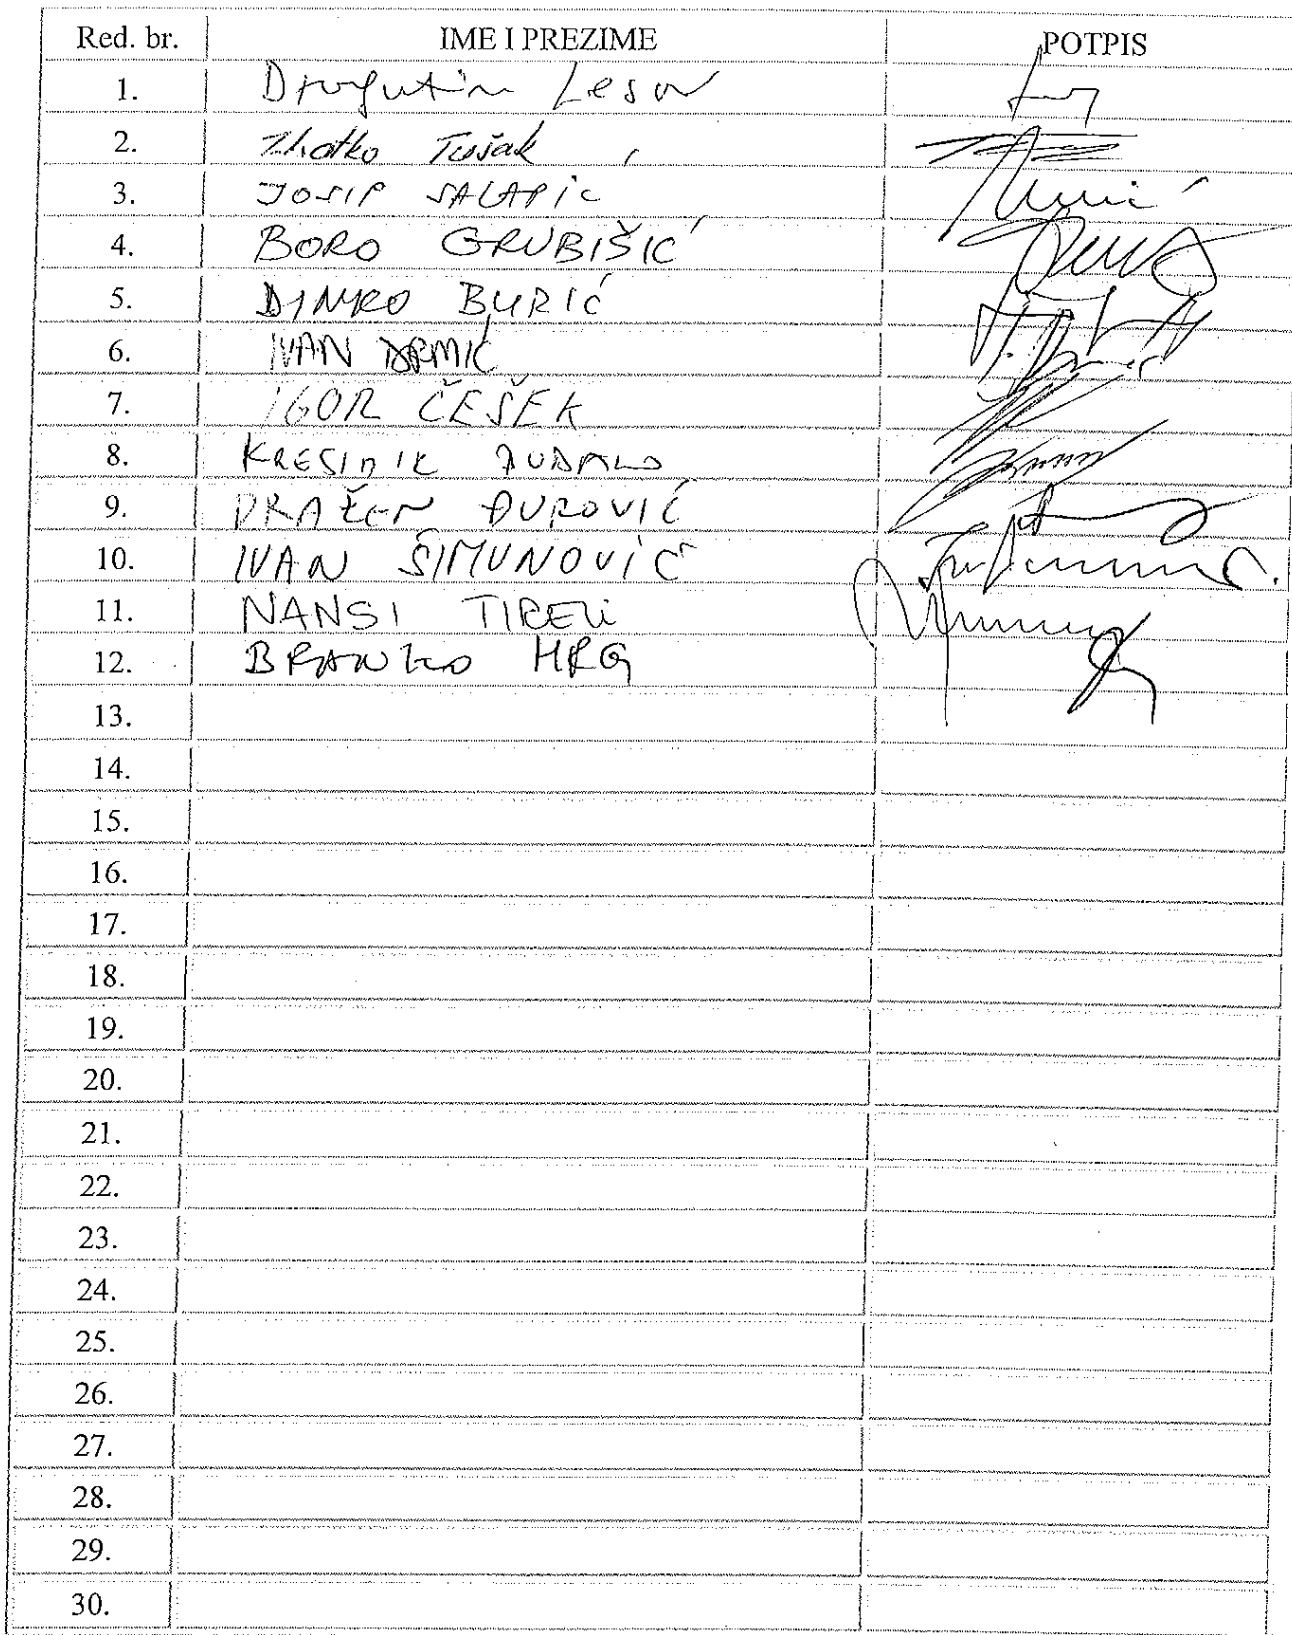 Red. br. IME I PREZIME POTPIS
1. Dragutin Lesar
2. Zlatko Tušak
3. JOSIP SALAPIĆ
4. BORO GRUBIŠIĆ
5. DINKO BURIĆ
6. IVAN DRMIĆ
7. IGOR ČEŠEK
8. KREŠIMIR
9. DRAŽEN ĐUROVIĆ
10. IVAN ŠIMUNOVIĆ
11. NANSI TIRELI
12. BRANKO HRG
13.
14.
15.
16.
17.
18.
19.
20.
21.
22.
23.
24.
25.
26.
27.
28.
29.
30.